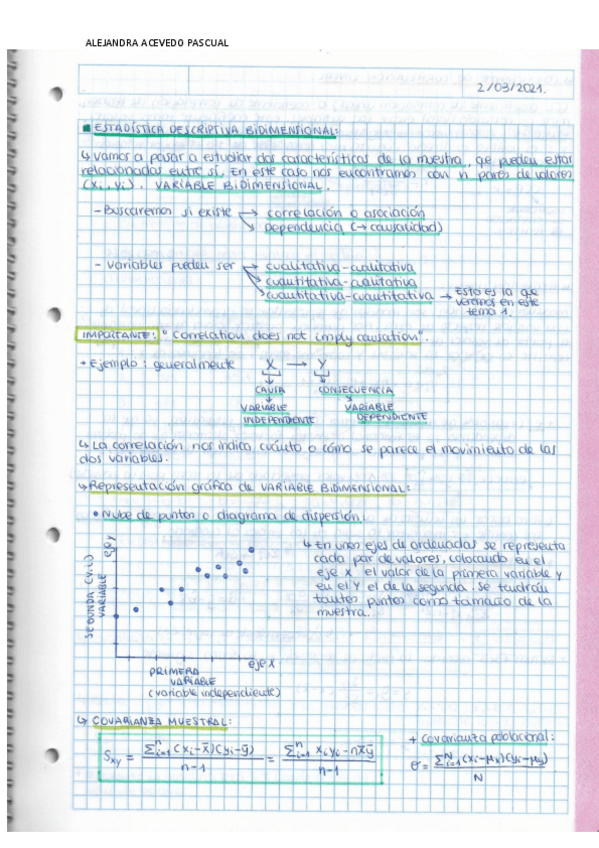 ALEJANDRA ACEVEDO PASCUAL
2/03/2021.
ESTADÍSTICA DESCRIPTIVA BIDIMENSIONAL:
↳ Vamos a pasar a estudiar dos características de la muestra, qe pueden estar
relacionadas entre sí. En este caso nos encontramos con n pares de valores
(xi, yi). VARIABLE BIDIMENSIONAL.
- Buscaremos si existe → correlación o asociación
Dependencia (→ causalidad)
- Variables pueden ser → cualitativa-cualitativa
cuantitativa-cualitativa
cuantitativa-cuantitativa → Esto es la qe
veremos en este
tema 1.
IMPORTANTE: "Correlation does not imply causation".
• Ejemplo: generalmente X → Y
CAUSA CONSECUENCIA
VARIABLE VARIABLE
INDEPENDIENTE DEPENDIENTE
↳ La correlación nos indica cuánto o cómo se parece el movimiento de las
dos variables.
↳ Representación gráfica de VARIABLE BIDIMENSIONAL:
• Nube de puntos o diagrama de dispersión.
↳ En unos ejes de ordenadas se representa
cada par de valores, colocando en el
eje X el valor de la primera variable y
en el Y el de la segunda. Se tendrán
tantos puntos como tamaño de la
muestra.
eje y
SEGUNDA
VARIABLE
eje x
PRIMERA
VARIABLE
(variable independiente)
↳ COVARIANZA MUESTRAL:
Sxy = Σⁿi=1 (xi-x̄)(yi-ȳ) / n-1 = Σⁿi=1 xiyi-nx̄ȳ / n-1
+ Covarianza poblacional:
σ = Σᴺi=1 (xi-μx)(yi-μy) / N